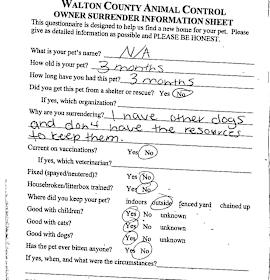 WALTON COUNTY ANIMAL CONTROL
OWNER SURRENDER INFORMATION SHEET
This questionnaire is designed to help us find a new home for your pet. Please
give as detailed information as possible and PLEASE BE HONEST.
What is your pet's name? N/A
How old is your pet? 3 months
How long have you had this pet? 3 months
Did you get this pet from a shelter or rescue? Yes No
If yes, which organization?
Why are you surrendering? I have other dogs
and don't have the resources
to keep them.
Current on vaccinations? Yes No
If yes, which veterinarian?
Fixed (spayed/neutered)? Yes No
Housebroken/litterbox trained? Yes No
Where did you keep your pet? indoors outside fenced yard chained up
Good with children? Yes No unknown
Good with cats? Yes No unknown
Good with dogs? Yes No unknown
Has the pet ever bitten anyone? Yes No
If yes, when, and what were the circumstances?